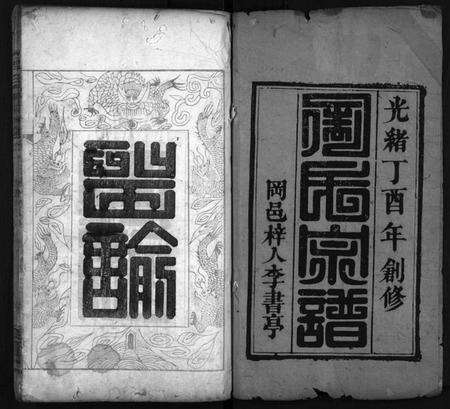 光緒丁酉年創修
陶氏宗譜
岡邑梓人李書亭
聖諭